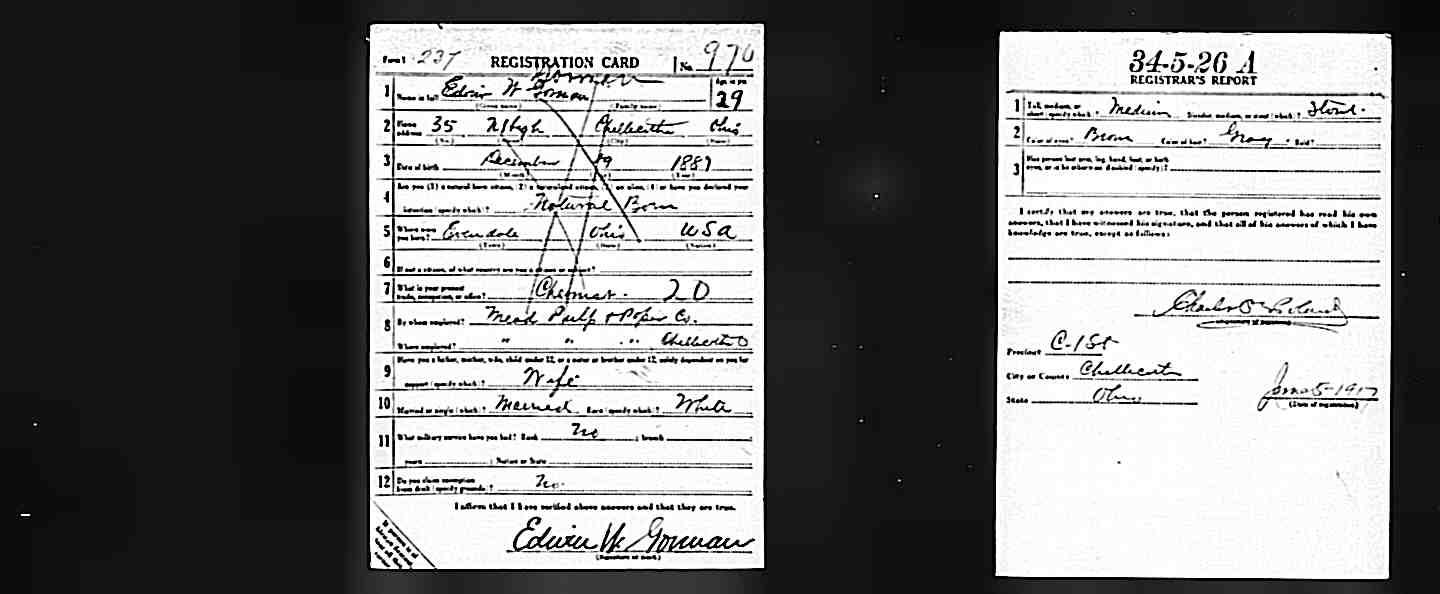 Form 1 237 REGISTRATION CARD No. 970
Gorman
1 Name in full Edwin W Gorman Age, in yrs. 29
(Given name) (Family name)
2 Home address 35 N High Chillicothe Ohio
(No.) (Street) (City) (State)
3 Date of birth December 1887
(Month) (Day) (Year)
4 Are you (1) a natural born citizen, (2) a naturalized citizen, (3) an alien, (4) or have you declared your
intention (specify which)? Natural Born
5 Where were you born? Ohio USA
(Town) (State) (Nation)
6 If not a citizen, of what country are you a citizen or subject?
7 What is your present trade, occupation, or office? Chemist. 20
8 By whom employed? Mead Pulp & Paper Co.
Where employed? " " " Chillicothe O
9 Have you a father, mother, wife, child under 12, or a sister or brother under 12, solely dependent on you for
support (specify which)? Wife
10 Married or single (which)? Married Race (specify which)? White
11 What military service have you had? Rank No ; branch
years ; Nation or State
12 Do you claim exemption from draft (specify grounds)? No.
I affirm that I have verified above answers and that they are true.
Edwin W. Gorman
(Signature or mark)
34-5-26 A
REGISTRAR'S REPORT
1 Tall, medium, or short (specify which)? Medium Slender, medium, or stout (which)? Stout.
2 Color of eyes? Brown Color of hair? Gray Bald?
3 Has person lost arm, leg, hand, foot, or both eyes, or is he otherwise disabled (specify)?
I certify that my answers are true, that the person registered has read his own
answers, that I have witnessed his signature, and that all of his answers of which I have
knowledge are true, except as follows:
Charles
(Signature of registrar)
Precinct C-1St
City or County Chillicothe
State Ohio
June 5-1917
(Date of registration)